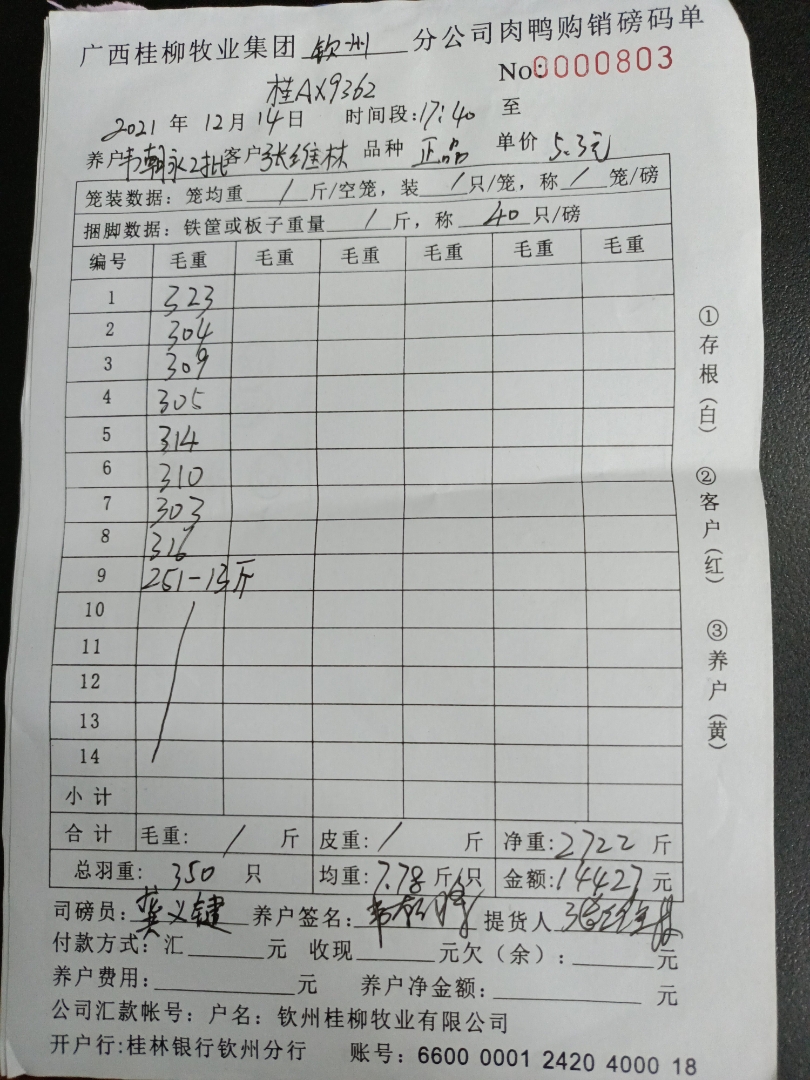 广西桂柳牧业集团 钦州 分公司肉鸭购销磅码单
No:0000803
桂AX9362
2021 年 12月 14日 时间段:17:40 至
养户韦朝永2批客户张维林 品种 正品 单价 5.3元
笼装数据:笼均重 / 斤/空笼,装 / 只/笼,称 / 笼/磅
捆脚数据:铁筐或板子重量 / 斤,称 40 只/磅
编号 毛重 毛重 毛重 毛重 毛重 毛重
1 323
2 304
3 309
4 305
5 314
6 310
7 303
8 316
9 251-13斤
10
11
12
13
14
小计
合计 毛重: / 斤 皮重: / 斤 净重:2722 斤
总羽重: 350 只 均重:7.78斤/只 金额:14427元
司磅员:龚义键 养户签名: 提货人 张维林
付款方式:汇 元 收现 元欠(余): 元
养户费用: 元 养户净金额: 元
公司汇款帐号:户名:钦州桂柳牧业有限公司
开户行:桂林银行钦州分行 账号:6600 0001 2420 4000 18
①存根(白) ②客户(红) ③养户(黄)